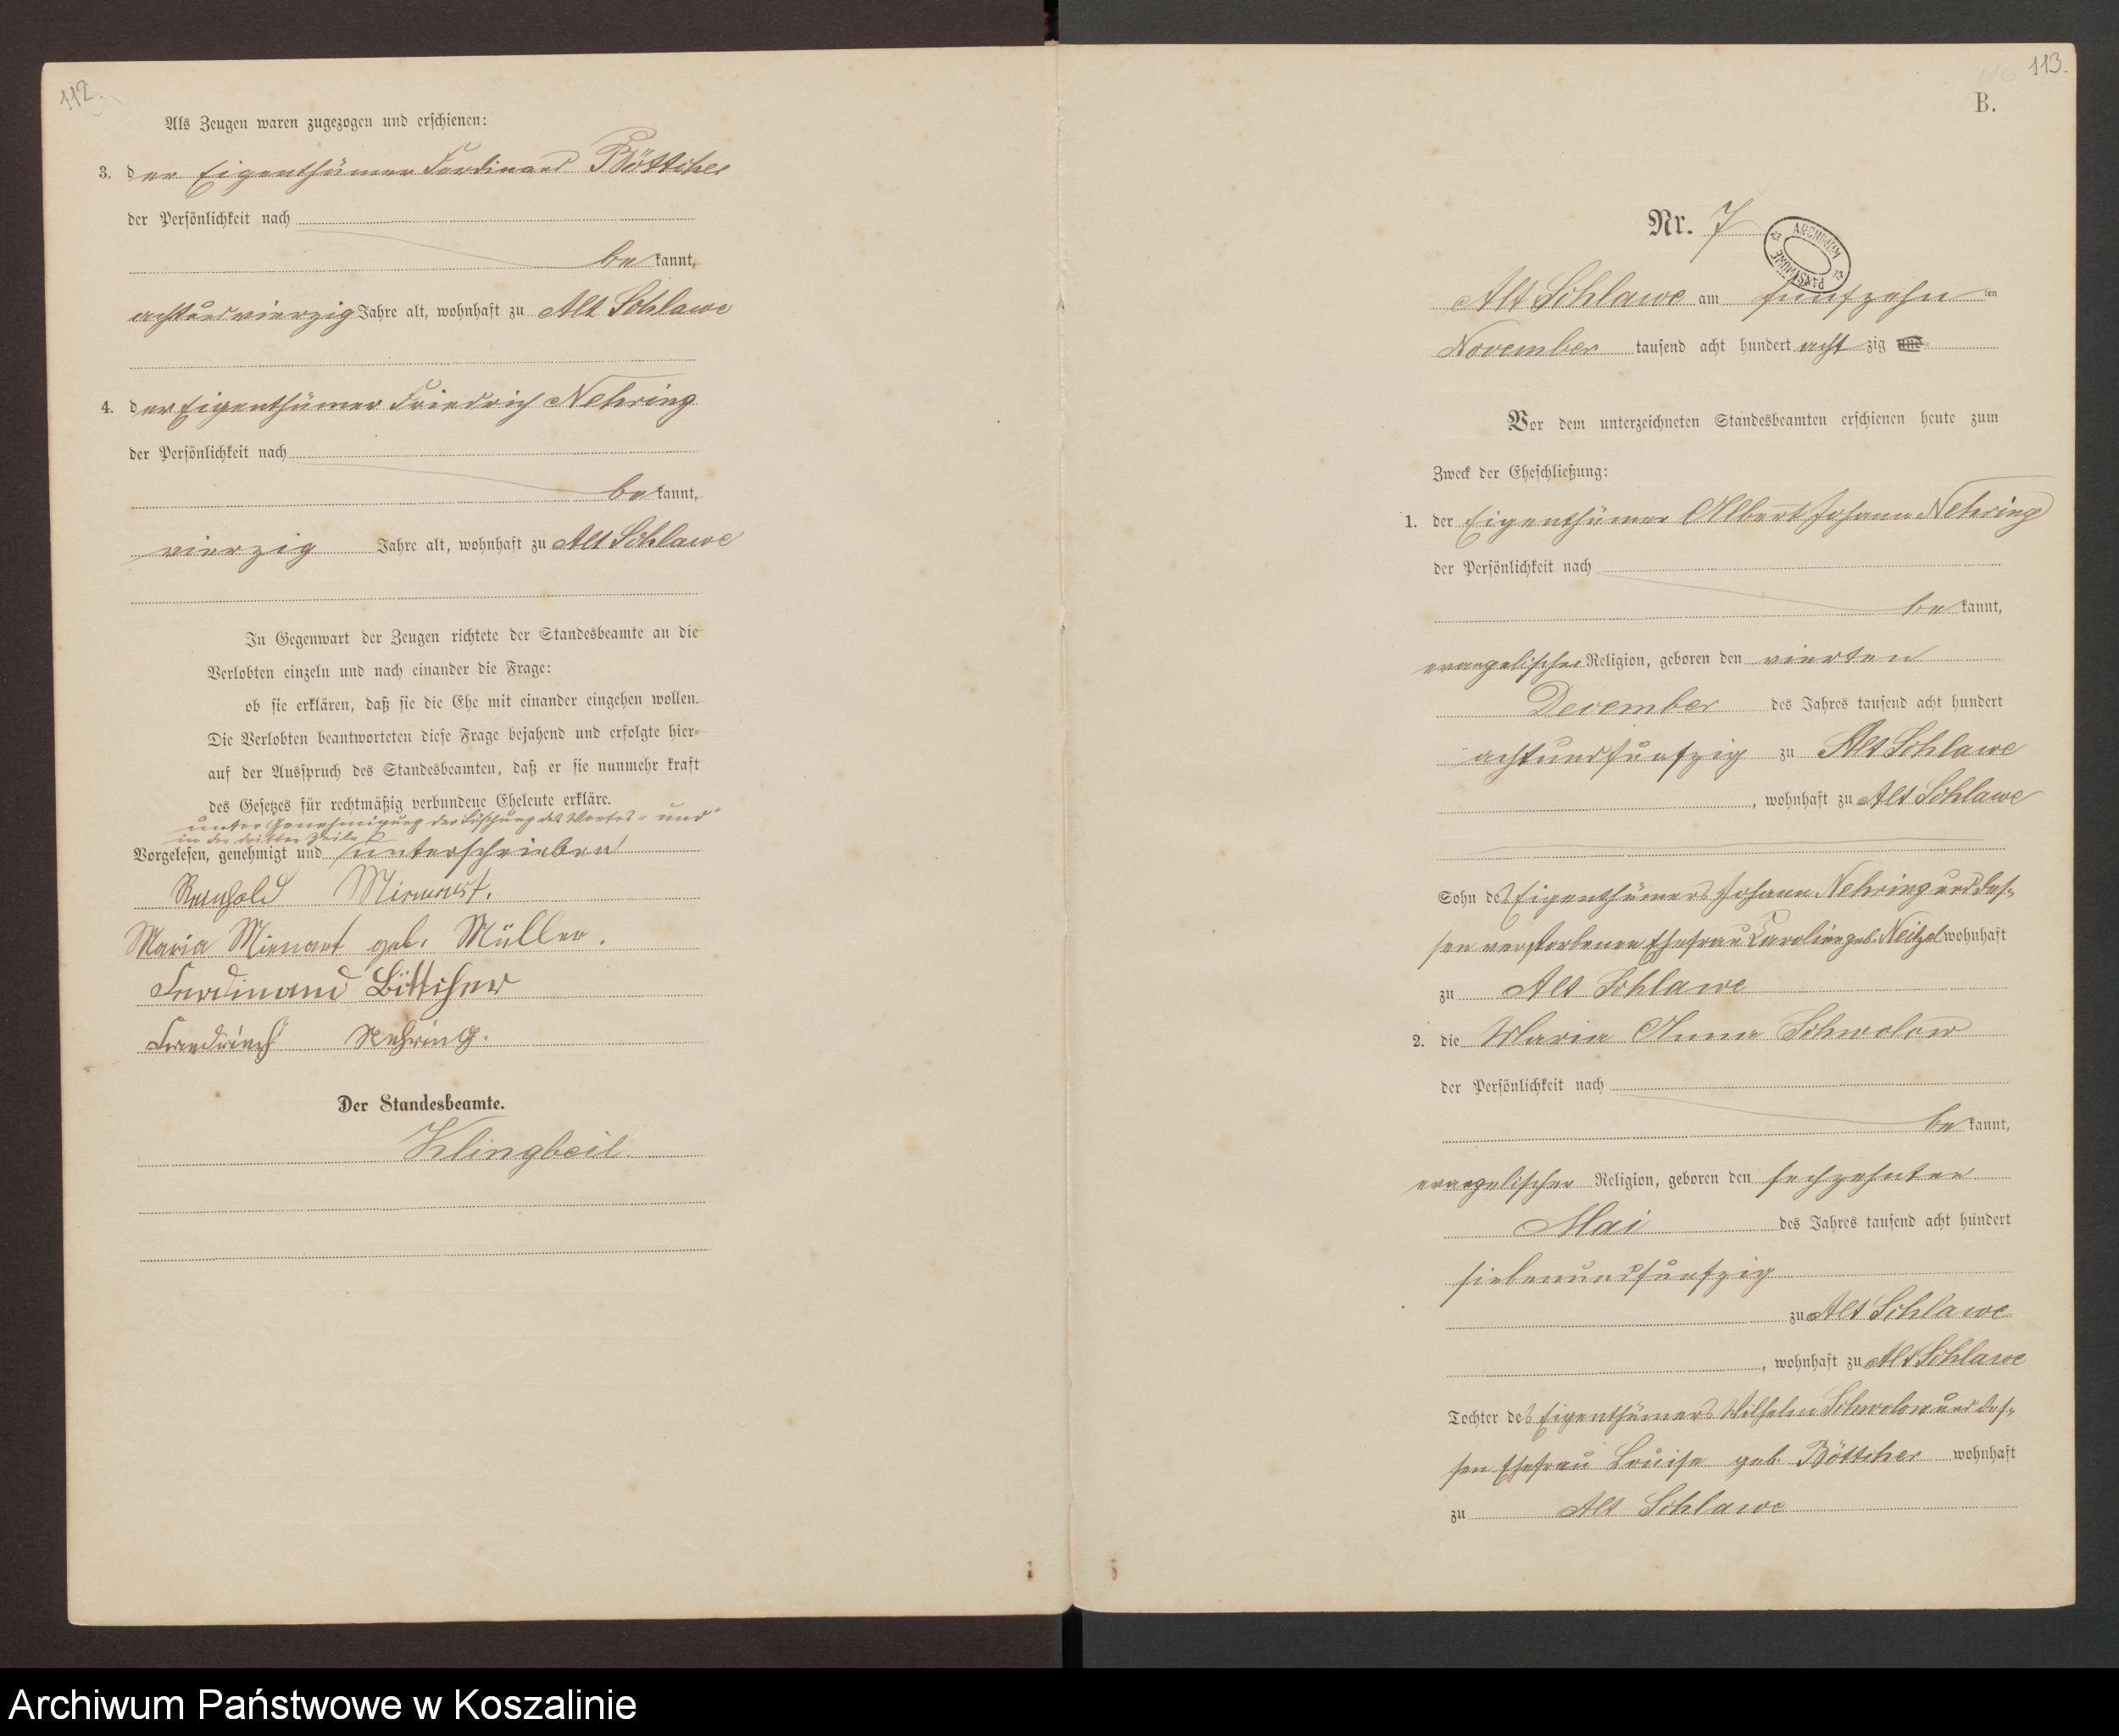 112.
Als Zeugen waren zugezogen und erschienen:
3. der Eigenthümer Ferdinand Böttcher
der Persönlichkeit nach
be kannt,
achtundvierzig Jahre alt, wohnhaft zu Alt Schlawe
4. der Eigenthümer Friedrich Nehring
der Persönlichkeit nach
be kannt,
vierzig Jahre alt, wohnhaft zu Alt Schlawe
In Gegenwart der Zeugen richtete der Standesbeamte an die
Verlobten einzeln und nach einander die Frage:
ob sie erklären, daß sie die Ehe mit einander eingehen wollen.
Die Verlobten beantworteten diese Frage bejahend und erfolgte hier-
auf der Ausspruch des Standesbeamten, daß er sie nunmehr kraft
des Gesetzes für rechtmäßig verbundene Eheleute erkläre.
unter Genehmigung der Löschung des Wortes "und"
in der dritten Zeile
Vorgelesen, genehmigt und unterschrieben
Reinhold
Maria geb. Müller.
Ferdinand Böttcher
Friedrich Nehring.
Der Standesbeamte.
Klingbeil.
113.
B.
Nr. 7
ARCHIWUM PAŃSTWOWE
Alt Schlawe am fünfzehn ten
November tausend acht hundert acht zig und
Vor dem unterzeichneten Standesbeamten erschienen heute zum
Zweck der Eheschließung:
1. der Eigenthümer Albert Johann Nehring
der Persönlichkeit nach
be kannt,
evangelischer Religion, geboren den vierten
December des Jahres tausend acht hundert
achtundfünfzig zu Alt Schlawe
, wohnhaft zu Alt Schlawe
Sohn des Eigenthümers Johann Nehring und des-
sen verstorbenen Ehefrau Caroline geb. Neitzel wohnhaft
zu Alt Schlawe
2. die Maria Anna Schwolow
der Persönlichkeit nach
be kannt,
evangelischer Religion, geboren den sechzehnten
Mai des Jahres tausend acht hundert
siebenundfünfzig
zu Alt Schlawe
, wohnhaft zu Alt Schlawe
Tochter des Eigenthümers Wilhelm Schwolow und des-
sen Ehefrau Louise geb. Böttcher wohnhaft
zu Alt Schlawe
Archiwum Państwowe w Koszalinie